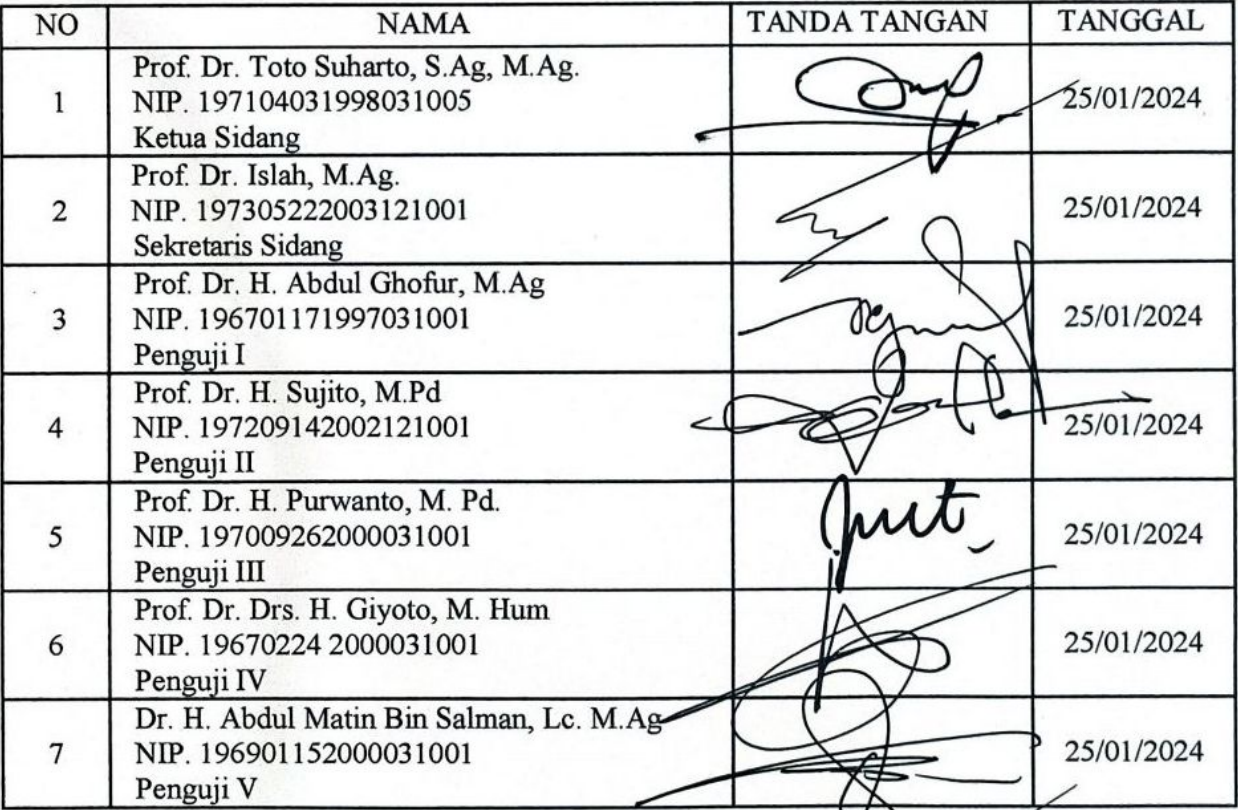 NO NAMA TANDA TANGAN TANGGAL
1 Prof. Dr. Toto Suharto, S.Ag, M.Ag.
NIP. 197104031998031005
Ketua Sidang
25/01/2024
2 Prof. Dr. Islah, M.Ag.
NIP. 197305222003121001
Sekretaris Sidang
25/01/2024
3 Prof. Dr. H. Abdul Ghofur, M.Ag
NIP. 196701171997031001
Penguji I
25/01/2024
4 Prof. Dr. H. Sujito, M.Pd
NIP. 197209142002121001
Penguji II
25/01/2024
5 Prof. Dr. H. Purwanto, M. Pd.
NIP. 197009262000031001
Penguji III
25/01/2024
6 Prof. Dr. Drs. H. Giyoto, M. Hum
NIP. 19670224 2000031001
Penguji IV
25/01/2024
7 Dr. H. Abdul Matin Bin Salman, Lc. M.Ag
NIP. 196901152000031001
Penguji V
25/01/2024